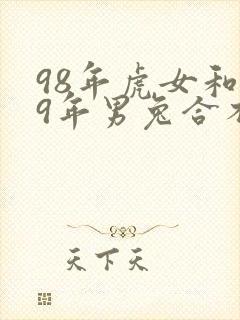 98年虎女和
9年男兔合
天下天